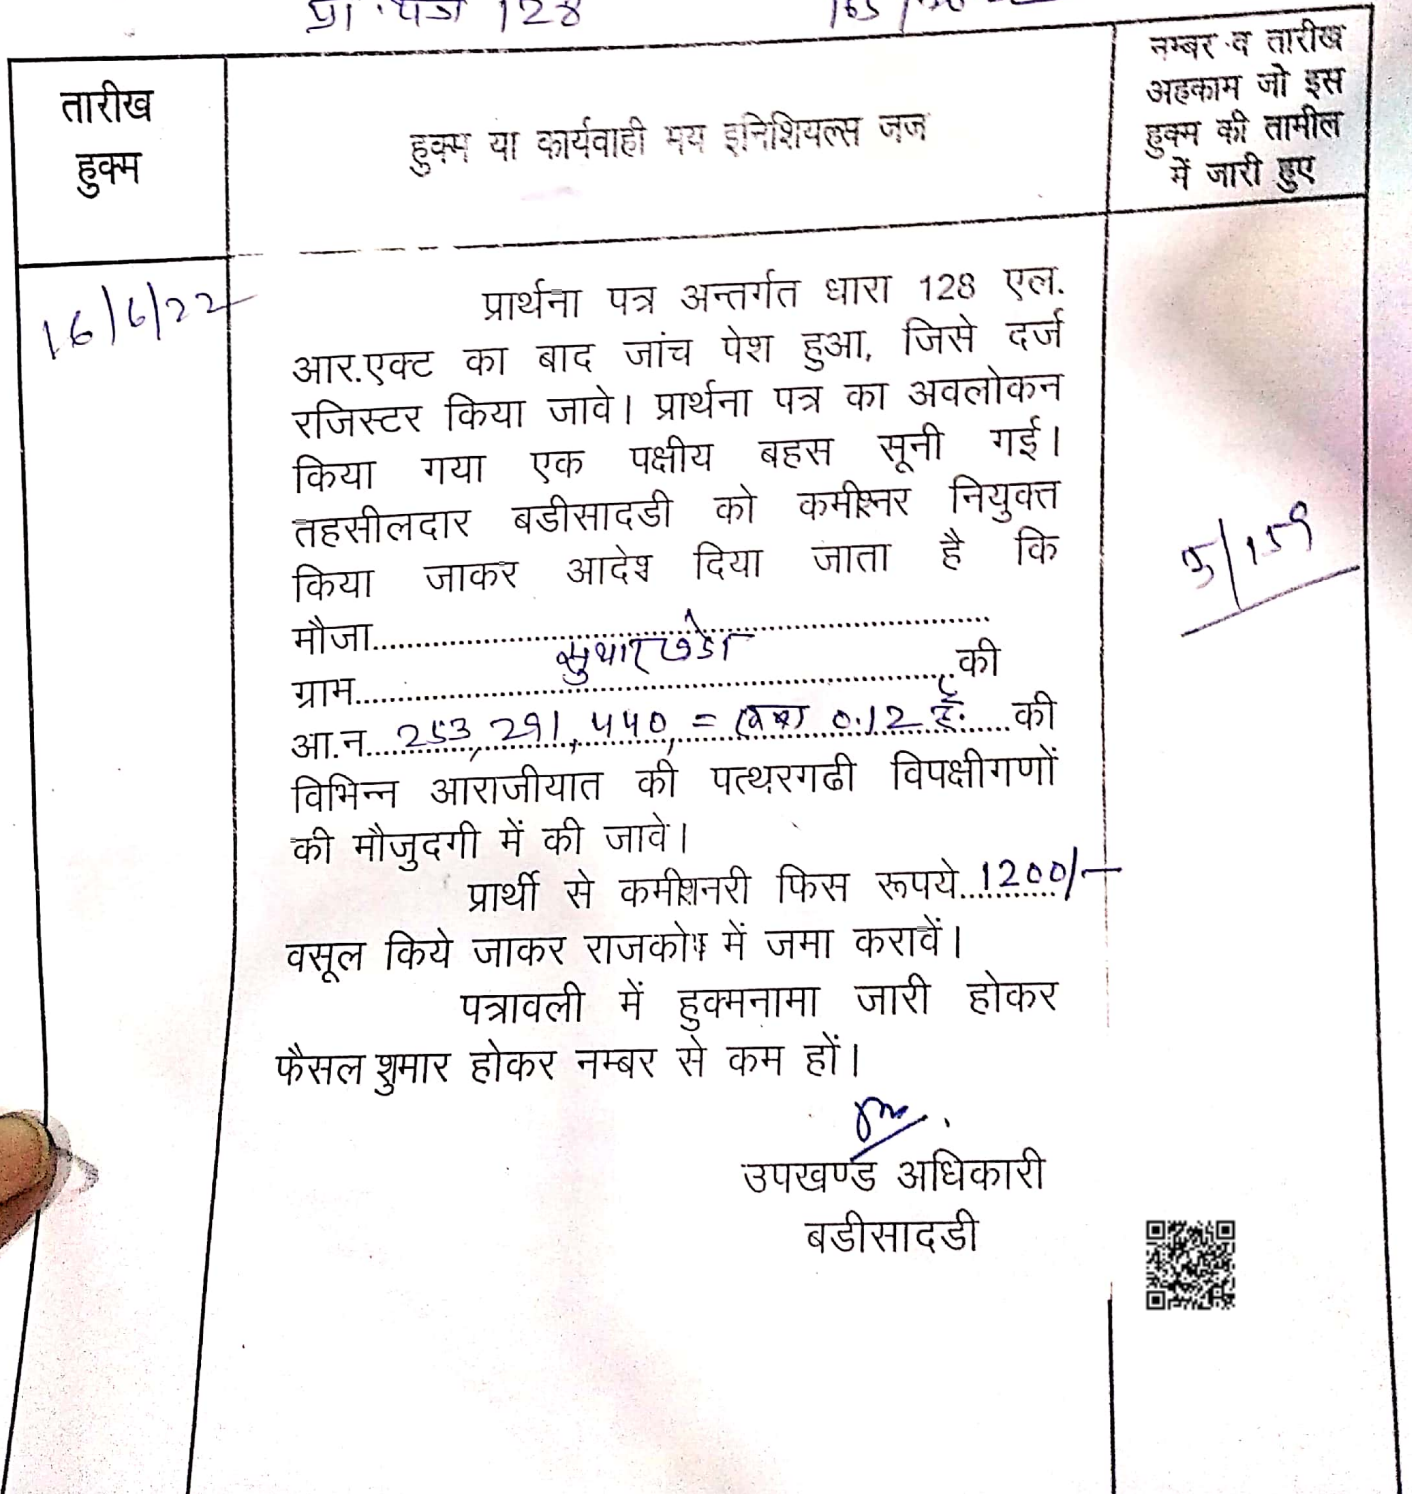 प्रा. पत्र 128
तारीख
हुक्म
हुक्म या कार्यवाही मय इनिशियल्स जज
नम्बर व तारीख
अहकाम जो इस
हुक्म की तामील
में जारी हुए
16/6/22
प्रार्थना पत्र अन्तर्गत धारा 128 एल.
आर.एक्ट का बाद जांच पेश हुआ, जिसे दर्ज
रजिस्टर किया जावे। प्रार्थना पत्र का अवलोकन
किया गया एक पक्षीय बहस सूनी गई।
तहसीलदार बडीसादडी को कमीश्नर नियुक्त
किया जाकर आदेश दिया जाता है कि
मौजा..........
ग्राम.......... सुथारखेडा ..........की
आ.न. 253, 291, 440, = 0.12 है. की
विभिन्न आराजीयात की पत्थरगढी विपक्षीगणों
की मौजुदगी में की जावे।
प्रार्थी से कमीशनरी फिस रूपये..1200/-
वसूल किये जाकर राजकोष में जमा करावें।
पत्रावली में हुक्मनामा जारी होकर
फैसल शुमार होकर नम्बर से कम हों।
उपखण्ड अधिकारी
बडीसादडी
5/159